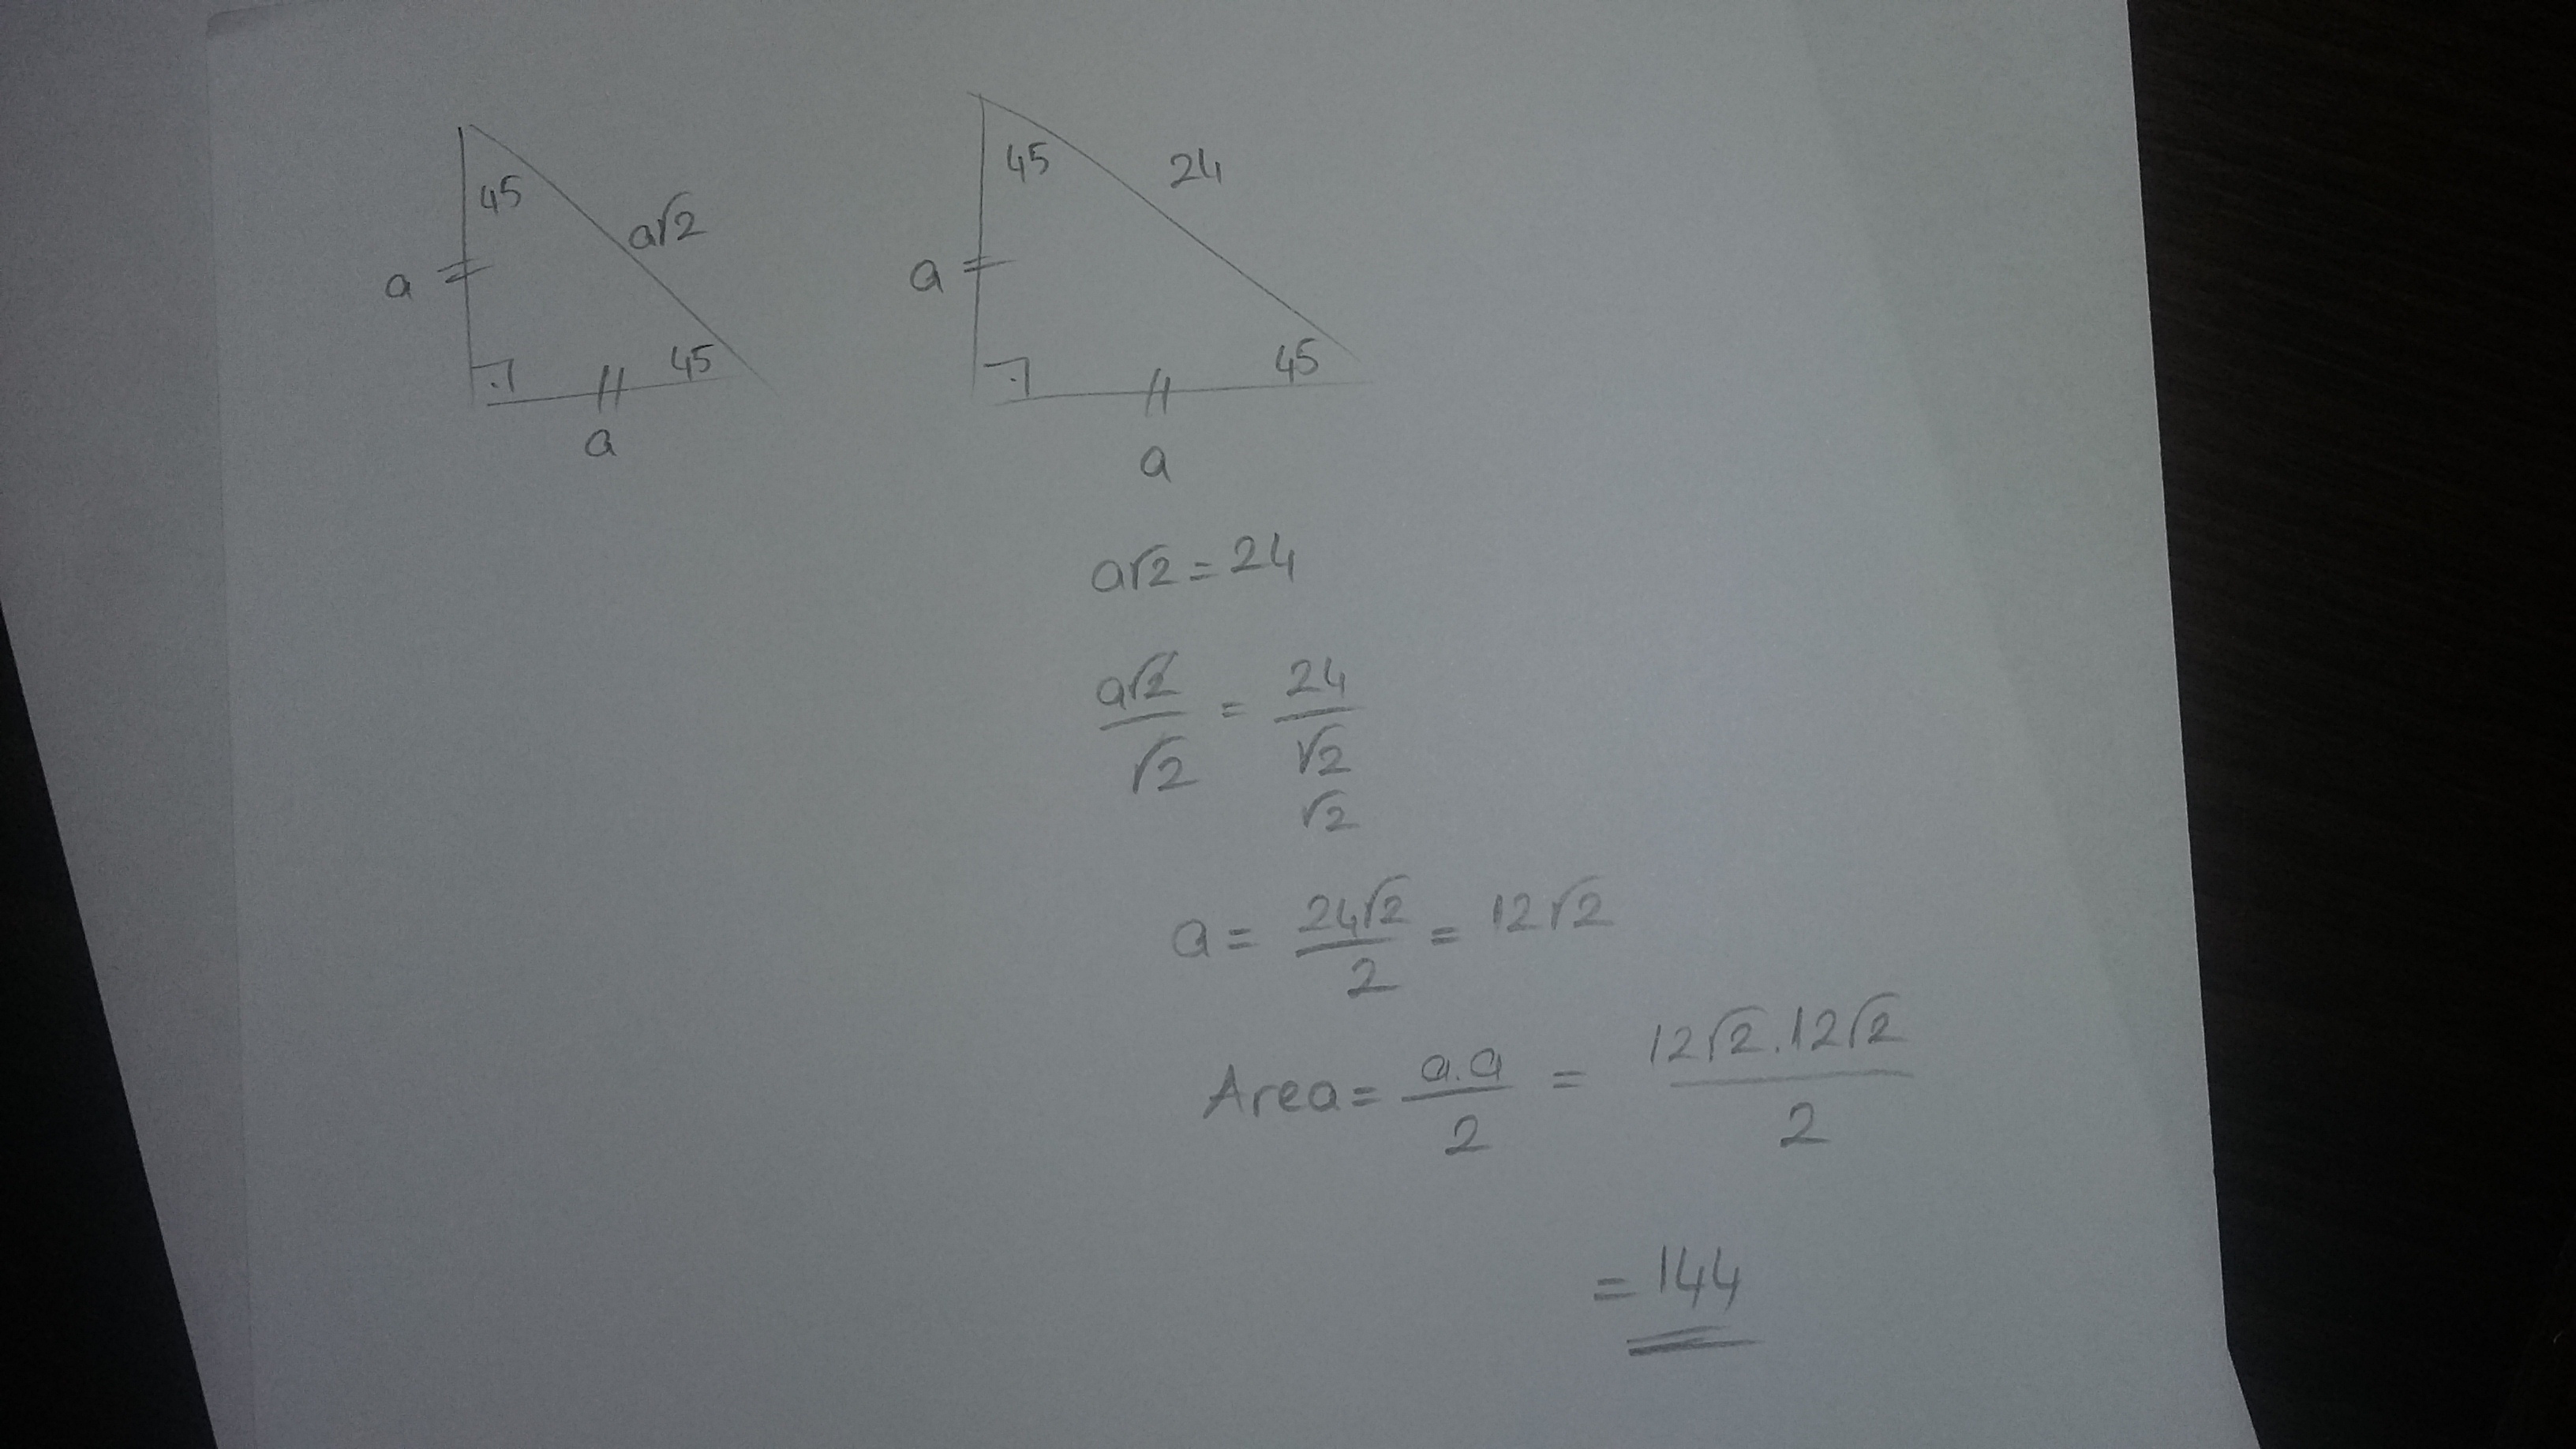 45
a√2
a
45
a
45
24
a
45
a
a√2 = 24
a√2/√2 = 24/√2
√2
a = 24√2/2 = 12√2
Area = a.a/2 = 12√2.12√2/2
= 144